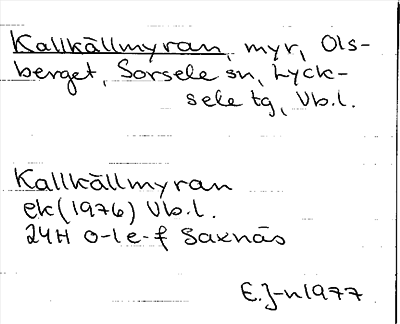 Kallkällmyran, myr, Ols-
berget, Sorsele sn, Lyck-
sele tg, Vb.l.
Kallkällmyran
ek (1976) Vb.l.
24H 0-1 e-f Saxnäs
E.J-n 1977